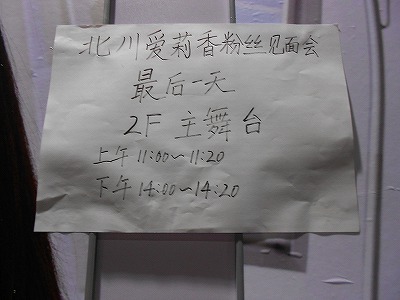 北川爱莉香粉丝见面会
最后一天
2F 主舞台
上午 11:00~11:20
下午 14:00~14:20